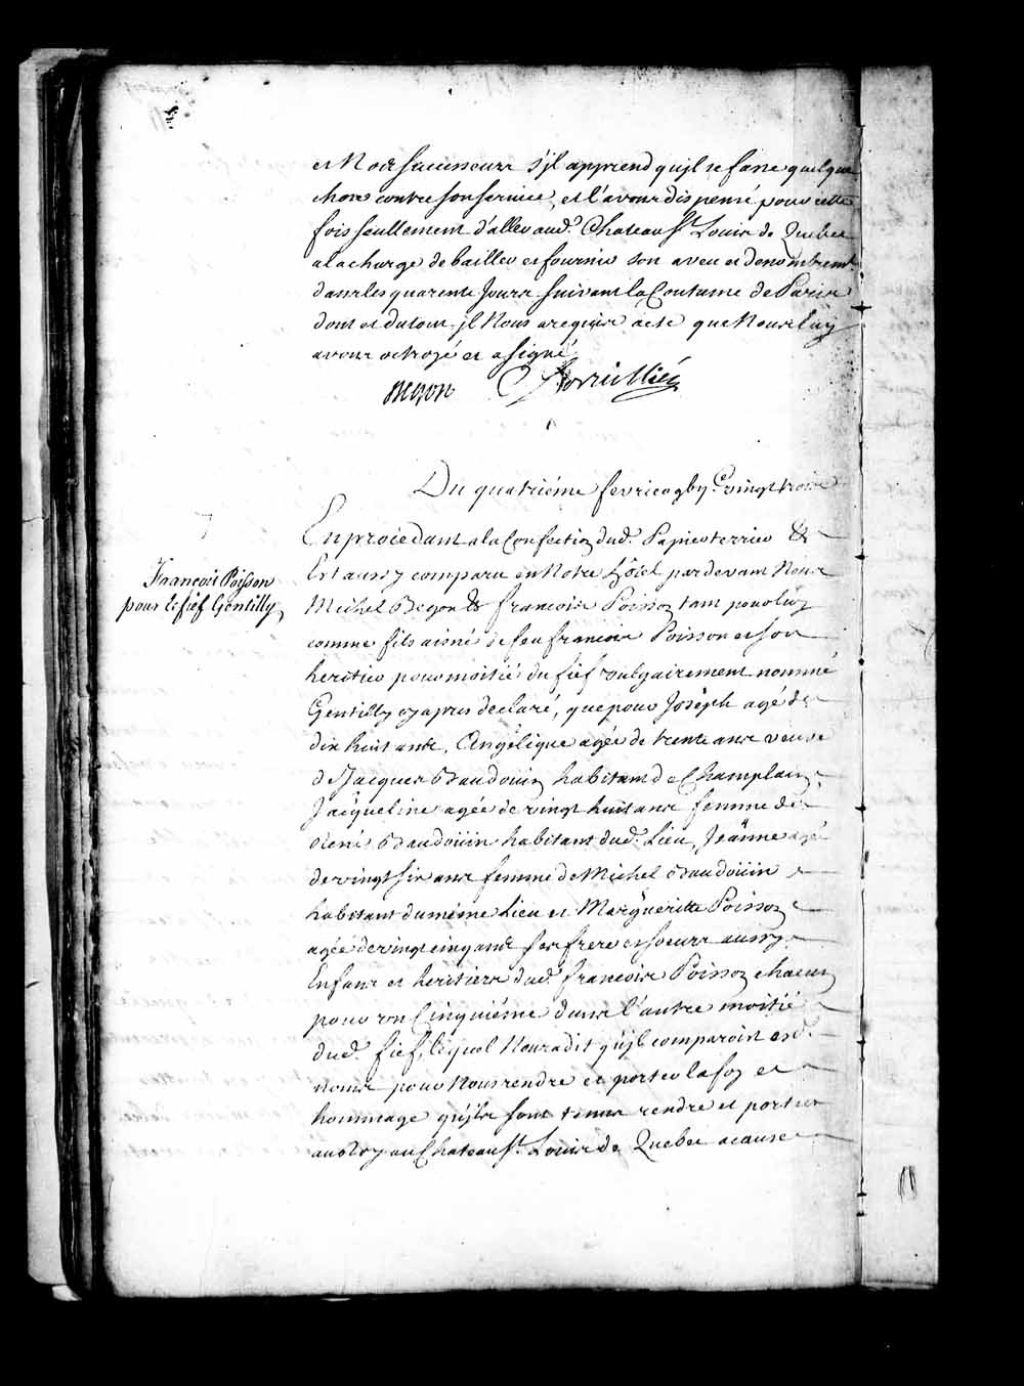 et Nos successeurs s'jl apprend qu'jl se fasse quelque
chose contre son service, et l'avons dispensé pour cette
fois seullement d'aller aud. Chateau St. Louis de Quebec
a la charge de bailler et fournir son aveu et denombremt.
dans les quarente Jours suivant la Coutume de Paris
dont et du tout jl Nous a requis acte que Nous luy
avons octroyé et a signé
Begon
Du quatriéme fevrier vingt trois
En procedant a la Confection dud. Papier terrier &
Est aussy comparu en Notre hôtel pardevant Nous
Michel Begon & francois Poisson tant pour luy
comme fils aisné de feu francois Poisson et son
heritier pour moitié du fief vulgairement nommé
Gentilly cy apres declaré, que pour Joseph agé de
dix huit ans, Angélique agée de trente ans veuve
de Jacques Baudouin habitant de Champlain,
Jacqueline agée de vingt huit ans femme de
René Baudoüin habitant dud. Lieu, Jeanne agée
de vingt six ans femme de Michel Baudoüin
habitant du méme Lieu et Marguerite Poisson
agée de vingt cinq ans ses frere et soeurs aussy
Enfans et heritiers dud. francois Poisson chacun
pour un Cinquiéme dans l'autre moitié
dud. fief, lequel Nous a dit qu'jl comparoist esd.
noms pour Nous rendre et porter la foy et
hommage qu'jls sont tenus rendre et porter
au Roy au Chateau St. Louis de Quebec a cause
François Poisson
pour le fief Gentilly